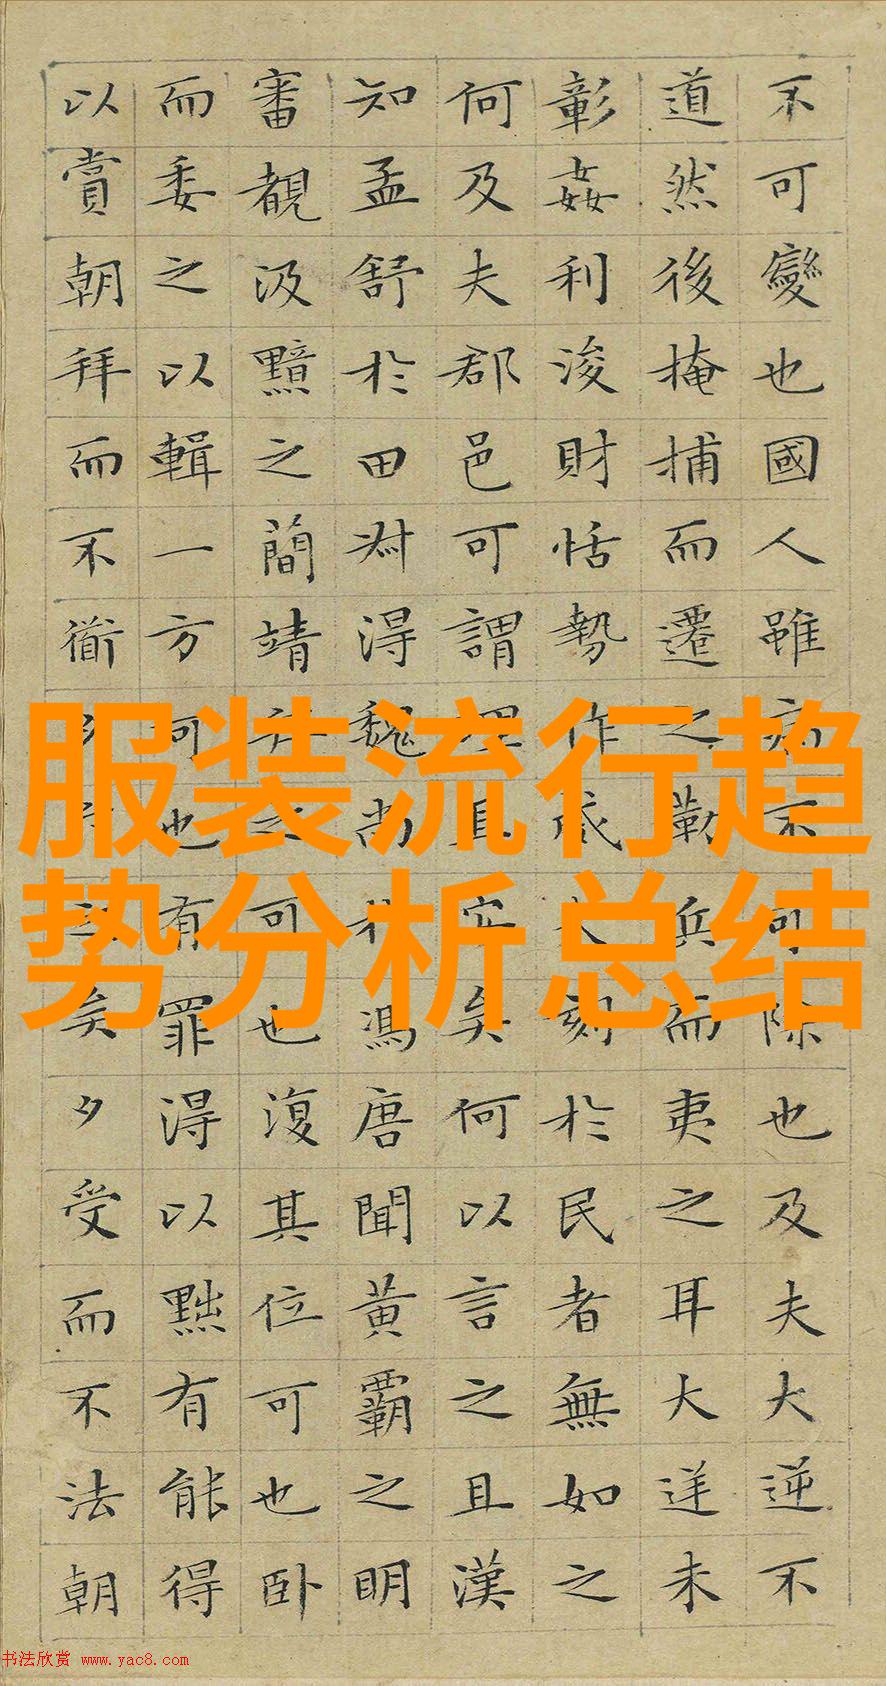 不可變也國人雖病不可除也及夫大逆不
道然後掩捕而遷之勒兵而夷之耳大逆未
彰姦利浚財恬勢作威大刻於民者無如之
何及夫郡邑可謂理且安矣何以言之且漢
知孟舒於田叔得魏尚於馮唐聞黃霸之明
審覩汲黯之簡靖拜之可也復其位可也卧
而委之以輯一方可也有罪得以黜有能得
以賞朝拜而不衜夕之矣夕受而不法朝
服装流行趋
势分析总结
书法欣赏 www.yac8.com